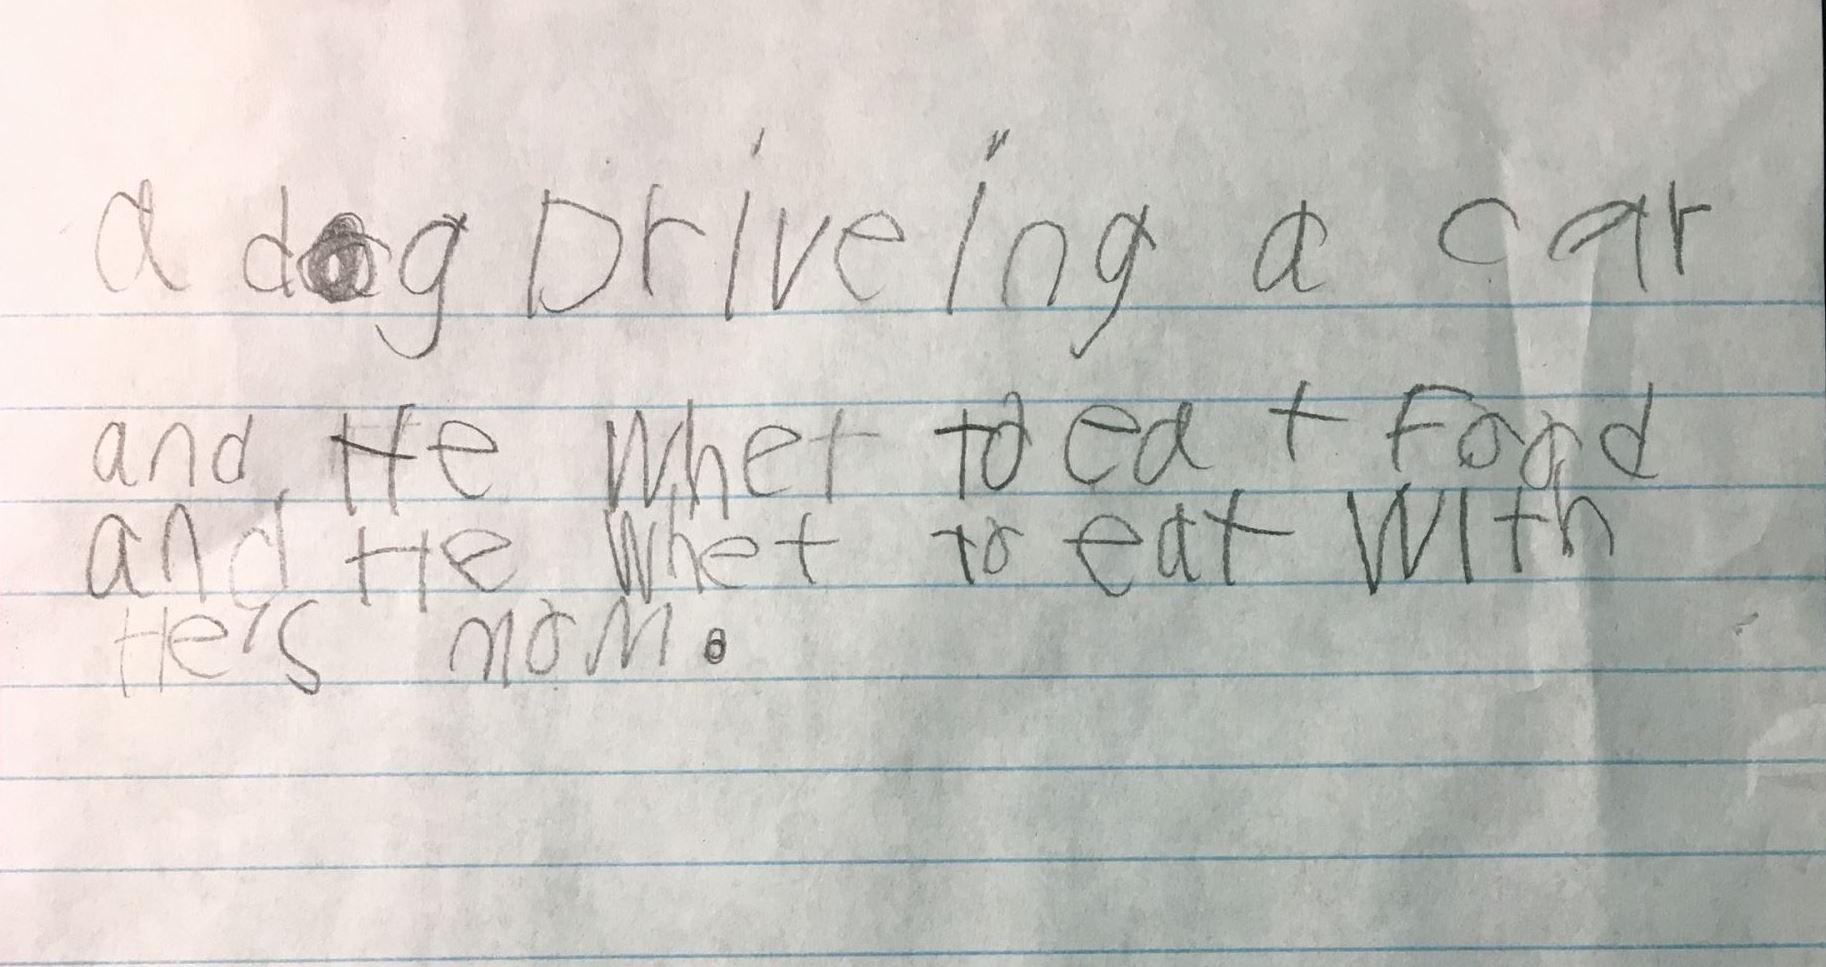 a dog Driveing a car
and He Whet to eat Food
and He Whet to eat With
He's mom.